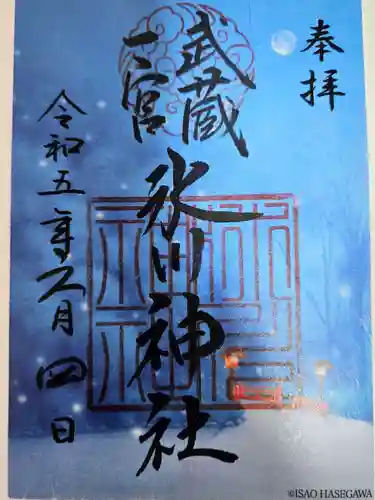 奉拝
武蔵
一宮
氷川神社
令和五年二月四日
©ISAO HASEGAWA